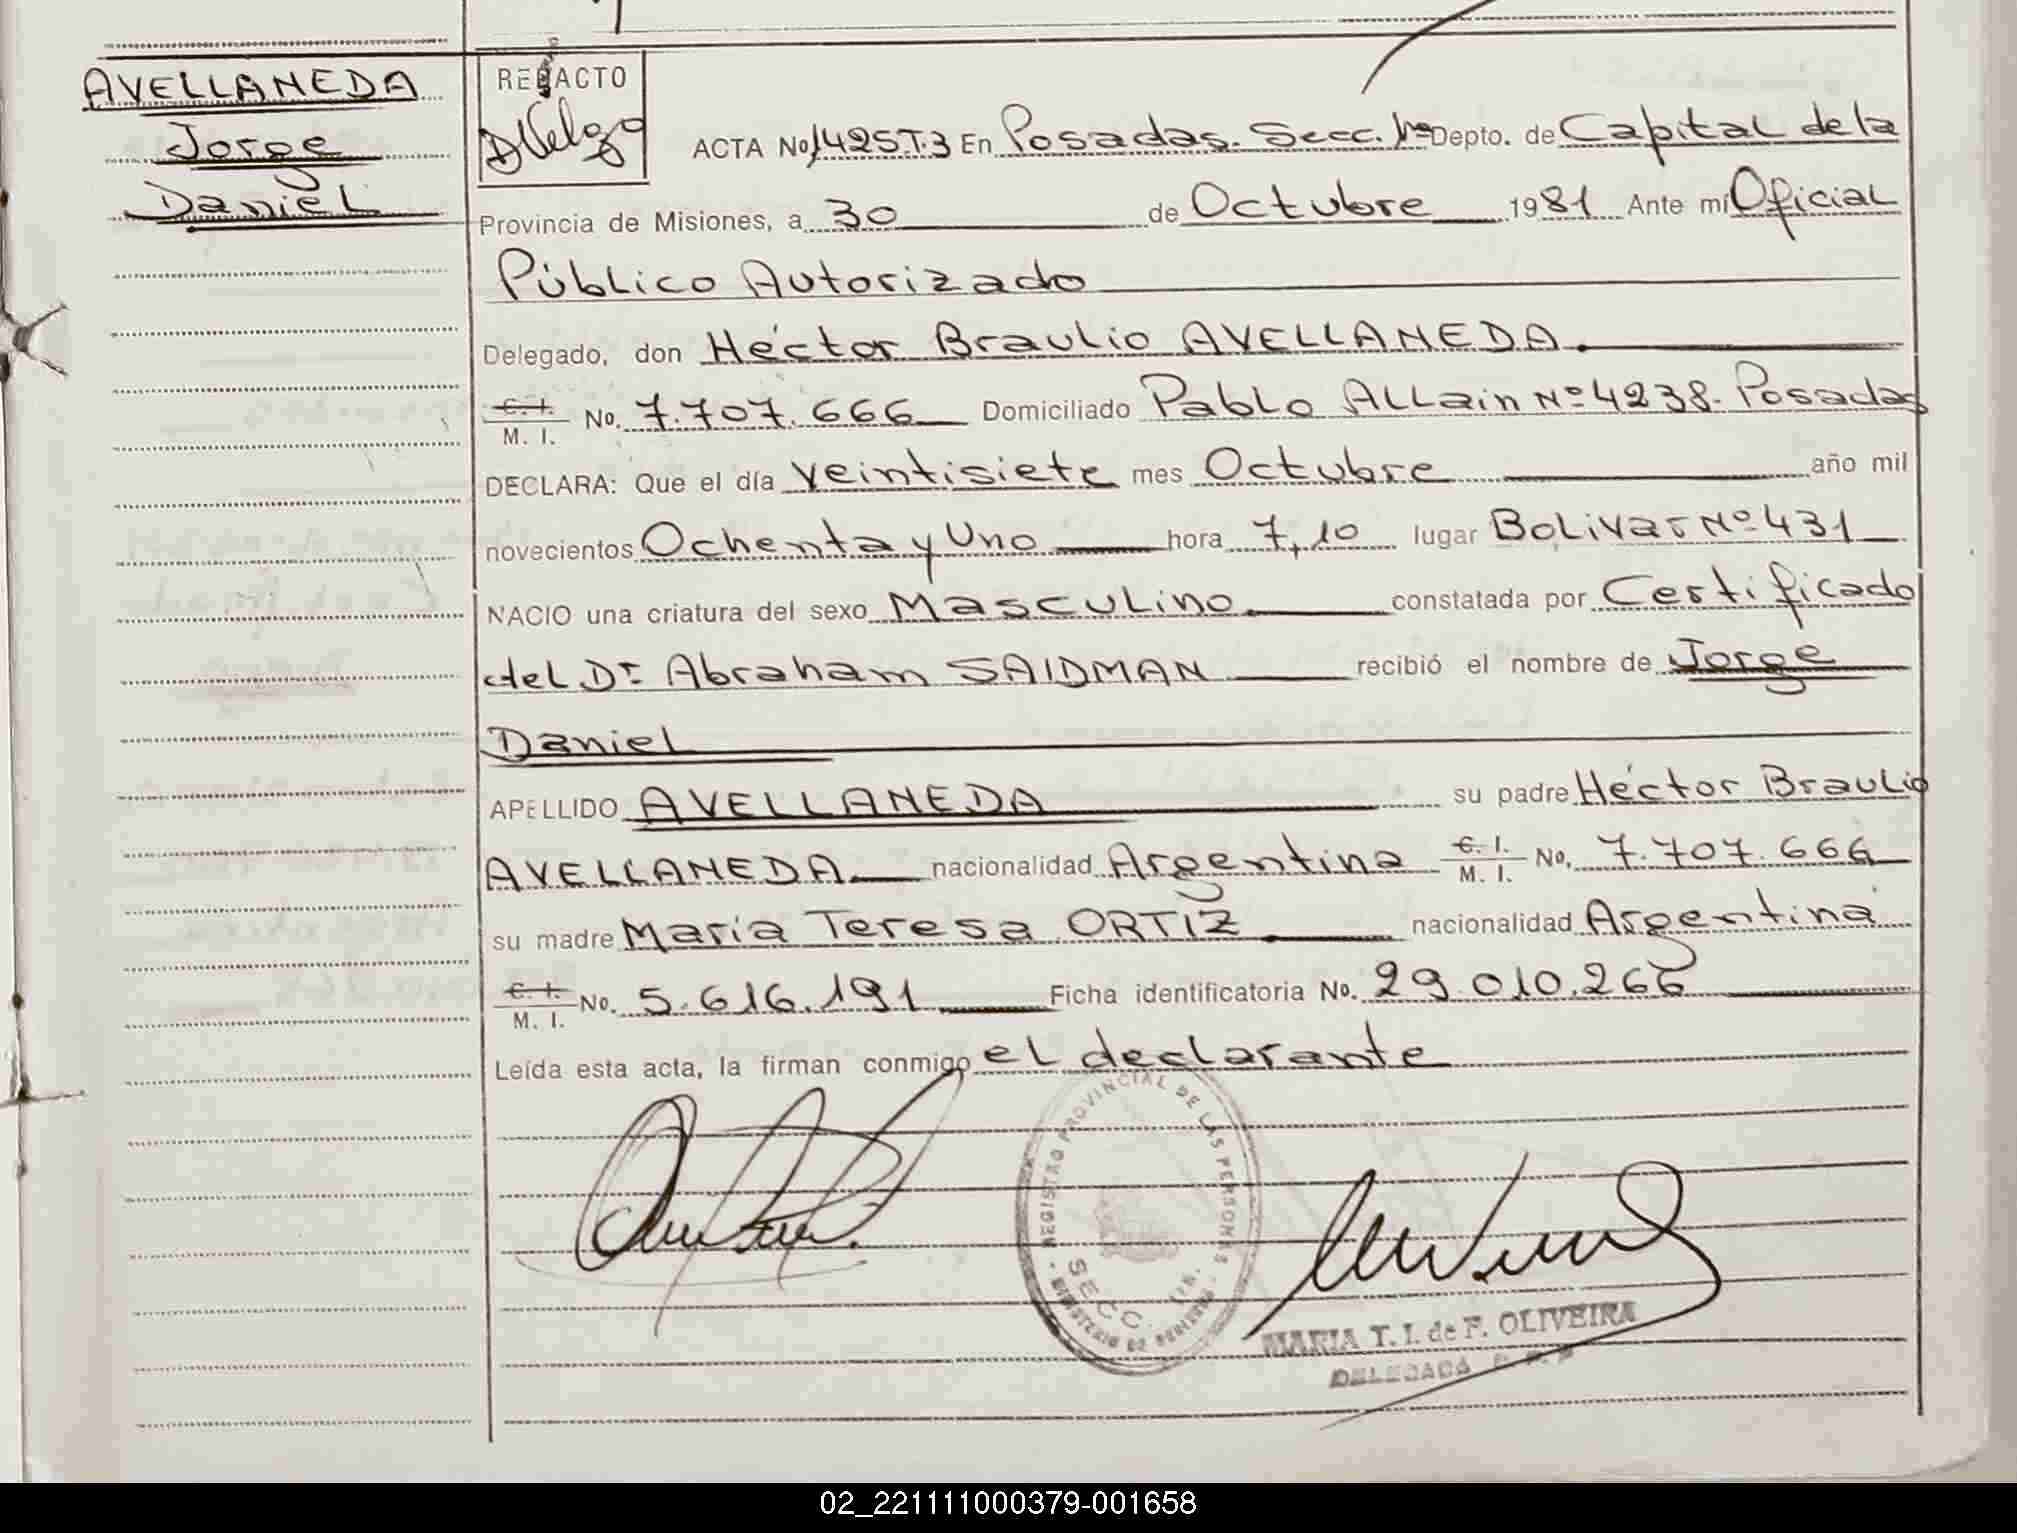 AVELLANEDA
Jorge
Daniel
REDACTO
ACTA No. 1425 T.3 En Posadas. Secc. 1ª Depto. de Capital de la
Provincia de Misiones, a 30 de Octubre 1981 Ante mí Oficial
Público Autorizado
Delegado, don Héctor Braulio AVELLANEDA.
C. I.
M. I. No. 7.707.666 Domiciliado Pablo Allain Nº 4238. Posadas
DECLARA: Que el día veintisiete mes Octubre año mil
novecientos Ochenta y Uno hora 7,10 lugar Bolivar Nº 431
NACIO una criatura del sexo Masculino constatada por Certificado
del Dr. Abraham SAIDMAN recibió el nombre de Jorge
Daniel
APELLIDO AVELLANEDA su padre Héctor Braulio
AVELLANEDA nacionalidad Argentina C. I.
M. I. No. 7.707.666
su madre María Teresa ORTIZ nacionalidad Argentina
C. I.
M. I. No. 5.616.191 Ficha identificatoria No. 29.010.266
Leída esta acta, la firman conmigo el declarante
REGISTRO PROVINCIAL DE LAS PERSONAS
SECC. 1ra.
MINISTERIO DE GOBIERNO
MARIA T. I. de F. OLIVEIRA
DELEGADA
02_221111000379-001658